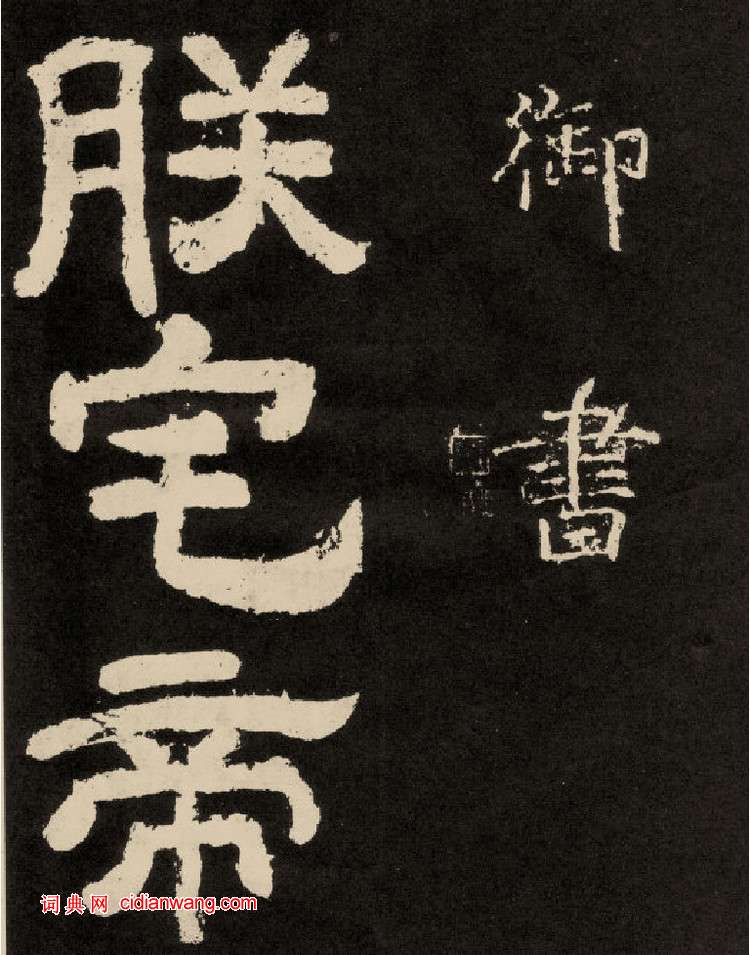 御書
朕宅帝
词典网 cidianwang.com